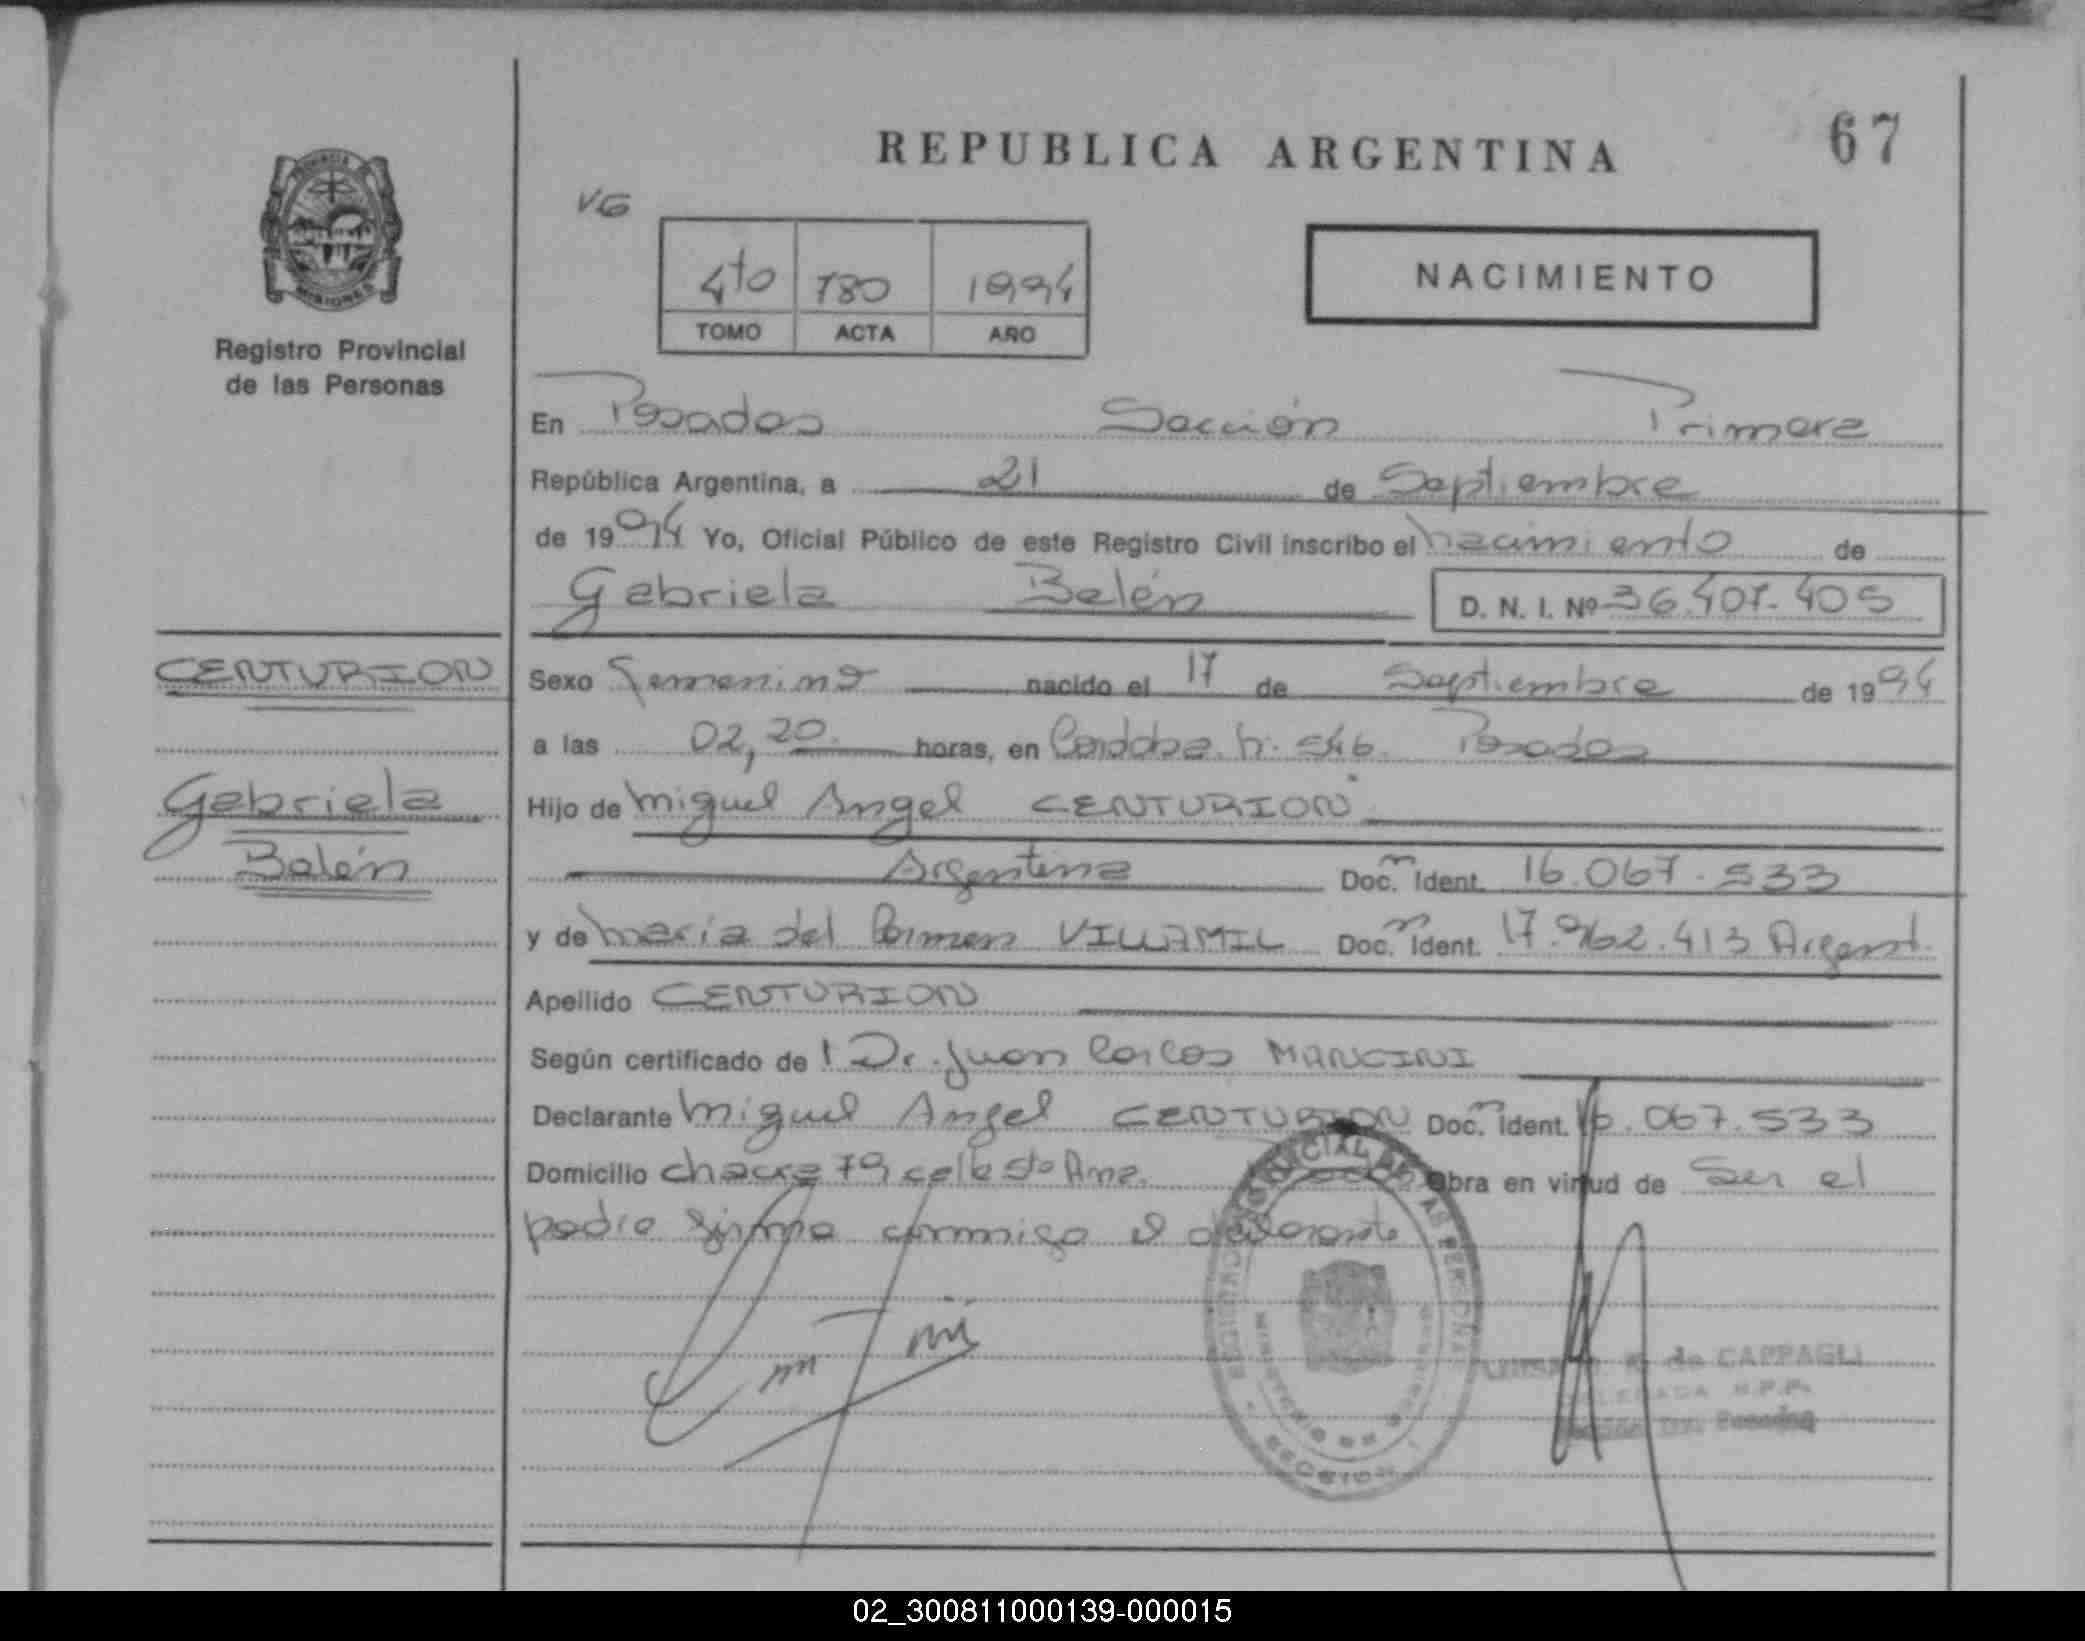 REPUBLICA ARGENTINA
67
VG
4to 780 1994
TOMO ACTA AÑO
NACIMIENTO
MISIONES
Registro Provincial
de las Personas
En Posadas Sección Primera
República Argentina, a 21 de Septiembre
de 1994 Yo, Oficial Público de este Registro Civil inscribo el nacimiento de
Gabriela Belén D. N. I. Nº 36.407.405
CENTURION
Gabriela
Belén
Sexo Femenino nacido el 17 de Septiembre de 1994
a las 02,20 horas, en Cordoba n: 546. Posadas
Hijo de Miguel Angel CENTURION
Argentina Doc. Ident. 16.067.533
y de Maria del Carmen VILLAMIL Doc. Ident. 17.962.413 Argent.
Apellido CENTURION
Según certificado de l Dr. Juan Carlos MANCINI
Declarante Miguel Angel CENTURION Doc. Ident. 16.067.533
Domicilio chacra 79 calle Sta Ana. Obra en virtud de Ser el
padre firma conmigo el declarante
de CAPPAGLI
DELEGADA R.P.P.
Posadas
02_300811000139-000015